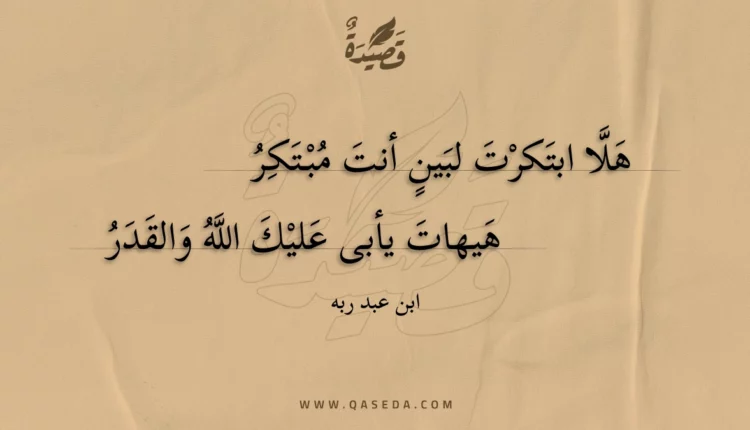 قَصِيْدَةٌ
هَلَّا ابتَكرْتَ لبَينٍ أنتَ مُبْتَكِرُ
هَيهاتَ يأبى عَليْكَ اللَّهُ وَالقَدَرُ
ابن عبد ربه
WWW.QASEDA.COM